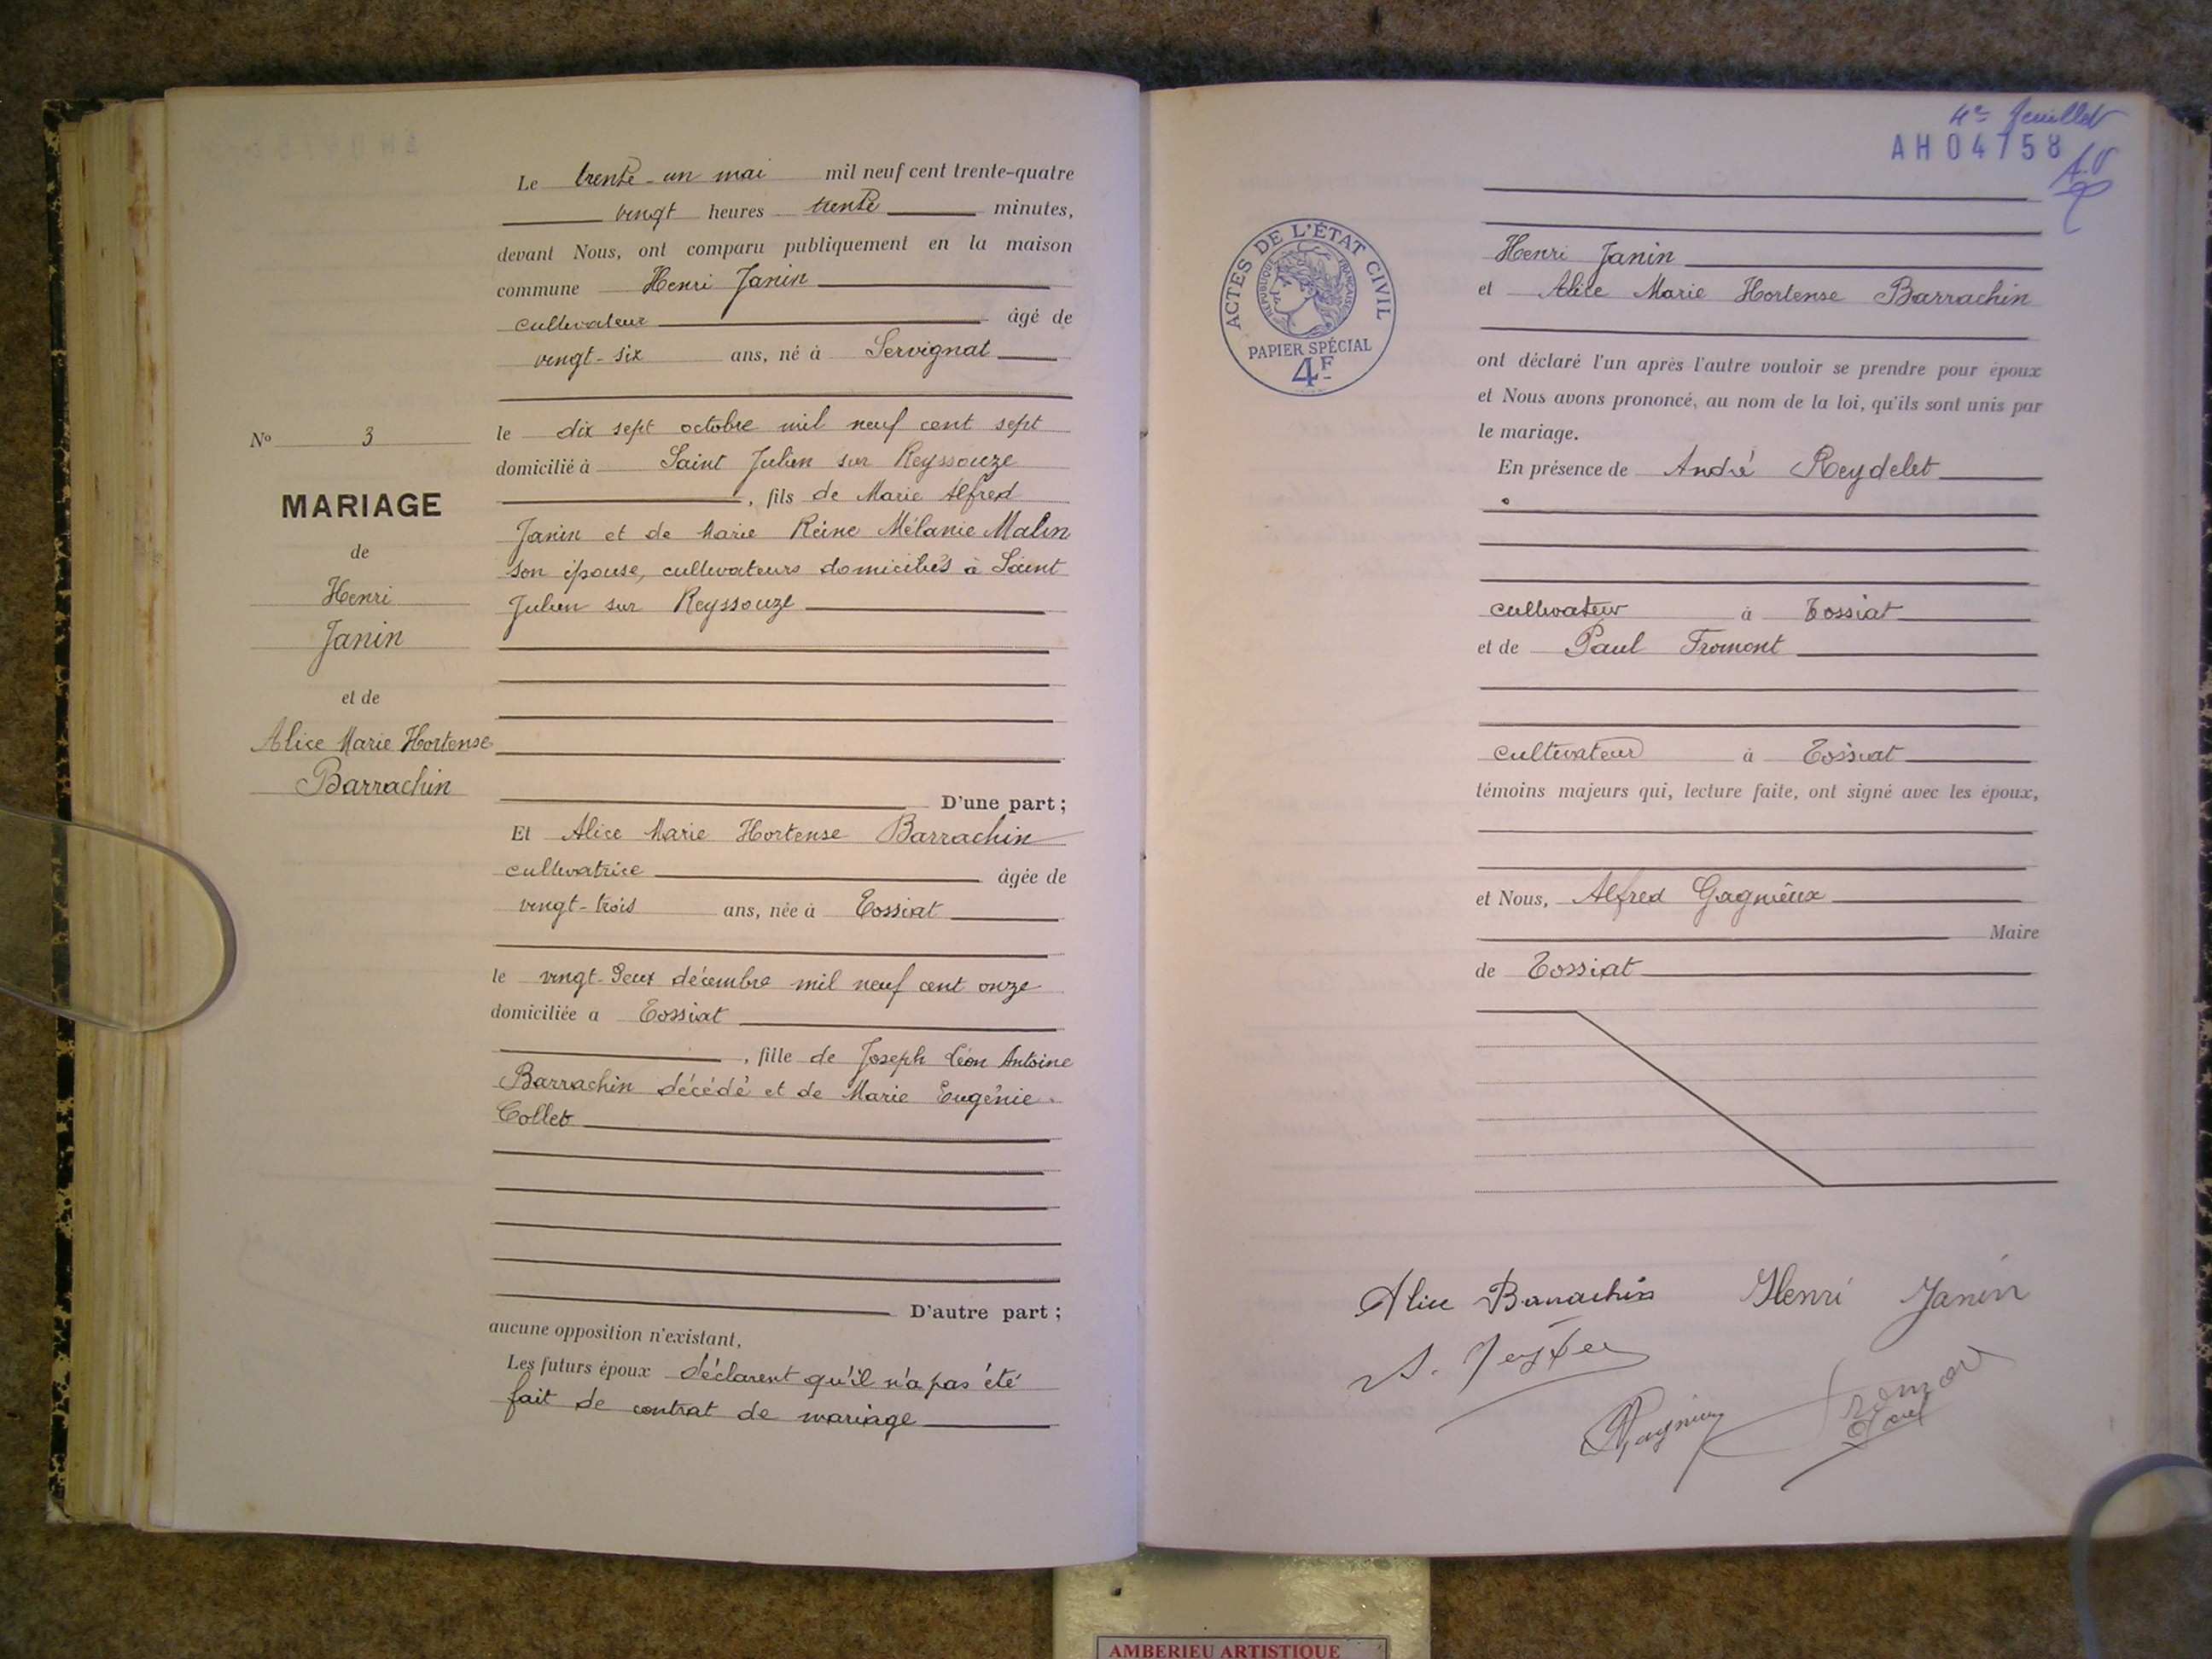 Le trente-un mai mil neuf cent trente-quatre
vingt heures trente minutes,
devant Nous, ont comparu publiquement en la maison
commune Henri Janin
cultivateur âgé de
vingt-six ans, né à Servignat
le dix sept octobre mil neuf cent sept
domicilié à Saint Julien sur Reyssouze
, fils de Marie Alfred
Janin et de Marie Reine Mélanie Malin
son épouse, cultivateurs domiciliés à Saint
Julien sur Reyssouze
No 3
MARIAGE
de
Henri
Janin
et de
Alice Marie Hortense
Barrachin
D'une part;
Et Alice Marie Hortense Barrachin
cultivatrice âgée de
vingt-trois ans, née à Tossiat
le vingt-deux décembre mil neuf cent onze
domiciliée a Tossiat
, fille de Joseph Léon Antoine
Barrachin décédé et de Marie Eugénie
Collet
D'autre part;
aucune opposition n'existant,
Les futurs époux déclarent qu'il n'a pas été
fait de contrat de mariage
4e feuillet
AH04758
ACTES DE L'ÉTAT CIVIL
RÉPUBLIQUE FRANÇAISE
PAPIER SPÉCIAL
4F
Henri Janin
et Alice Marie Hortense Barrachin
ont déclaré l'un après l'autre vouloir se prendre pour époux
et Nous avons prononcé, au nom de la loi, qu'ils sont unis par
le mariage.
En présence de André Reydelet
cultivateur à Tossiat
et de Paul Fromont
cultivateur à Tossiat
témoins majeurs qui, lecture faite, ont signé avec les époux,
et Nous, Alfred Gagnieux
Maire
de Tossiat
Alice Barrachin Henri Janin
Gagnieux
AMBERIEU ARTISTIQUE